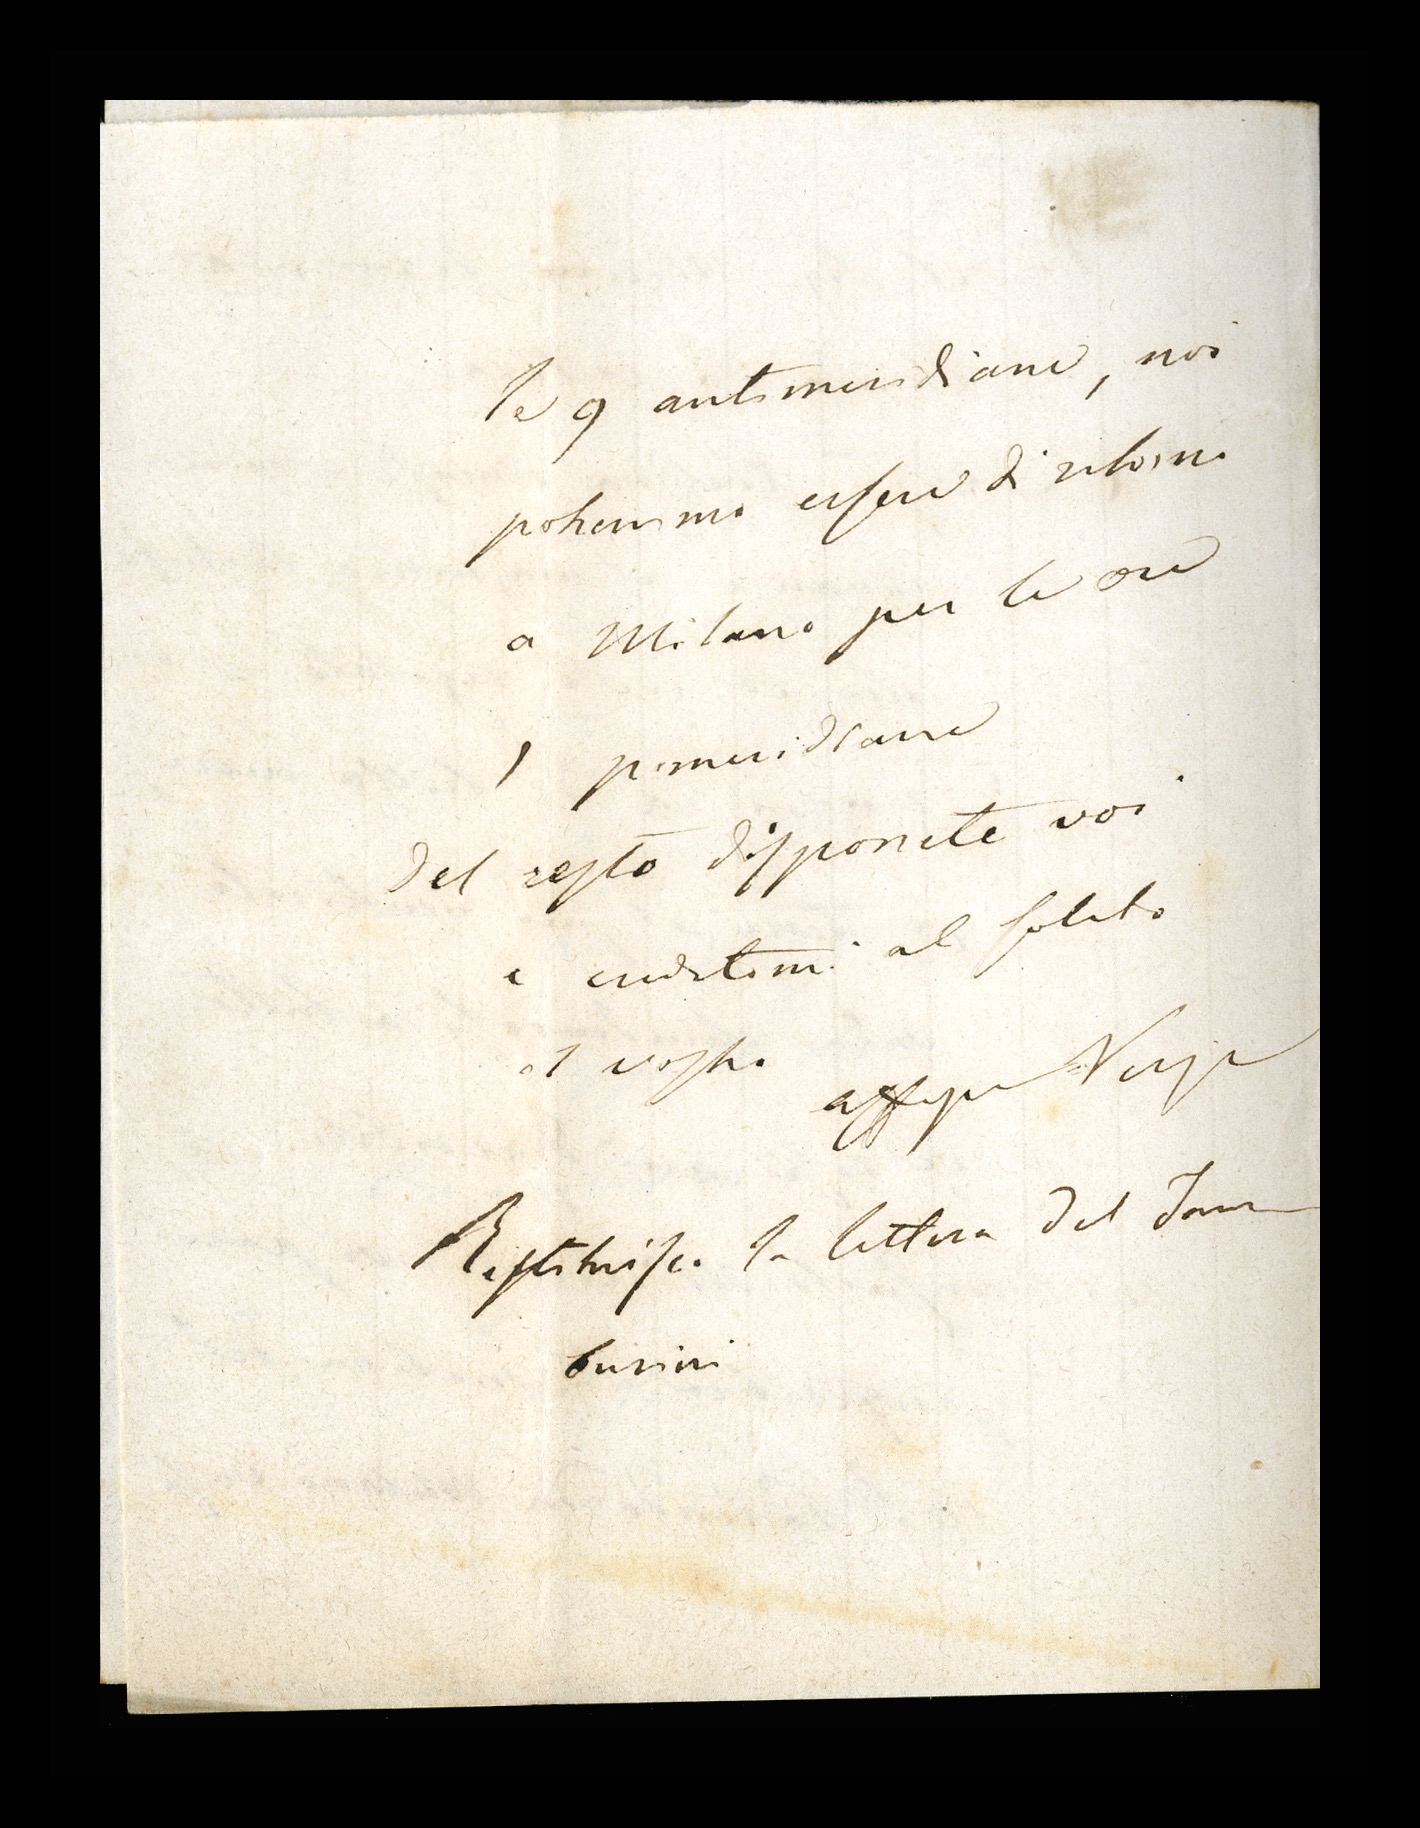 le 9 antimeridiane, noi
potressimo essere di ritorno
a Milano per le ore
1 pomeridiane
Del resto disponete voi
e credetemi al solito
il vostro
Restituisco la lettera del Tam
burini